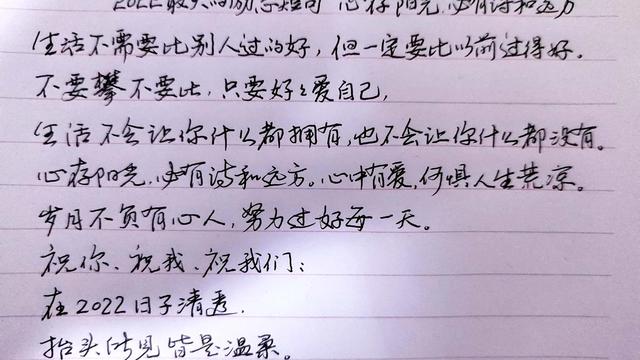 2022最火的励志短句 心存阳光,必有诗和远方
生活不需要比别人过的好,但一定要比以前过得好。
不要攀不要比,只要好好爱自己,
生活不会让你什么都拥有,也不会让你什么都没有。
心存阳光,必有诗和远方。心中有爱,何惧人生荒凉。
岁月不负有心人,努力过好每一天。
祝你、祝我、祝我们:
在2022日子清透,
抬头所见皆是温柔。